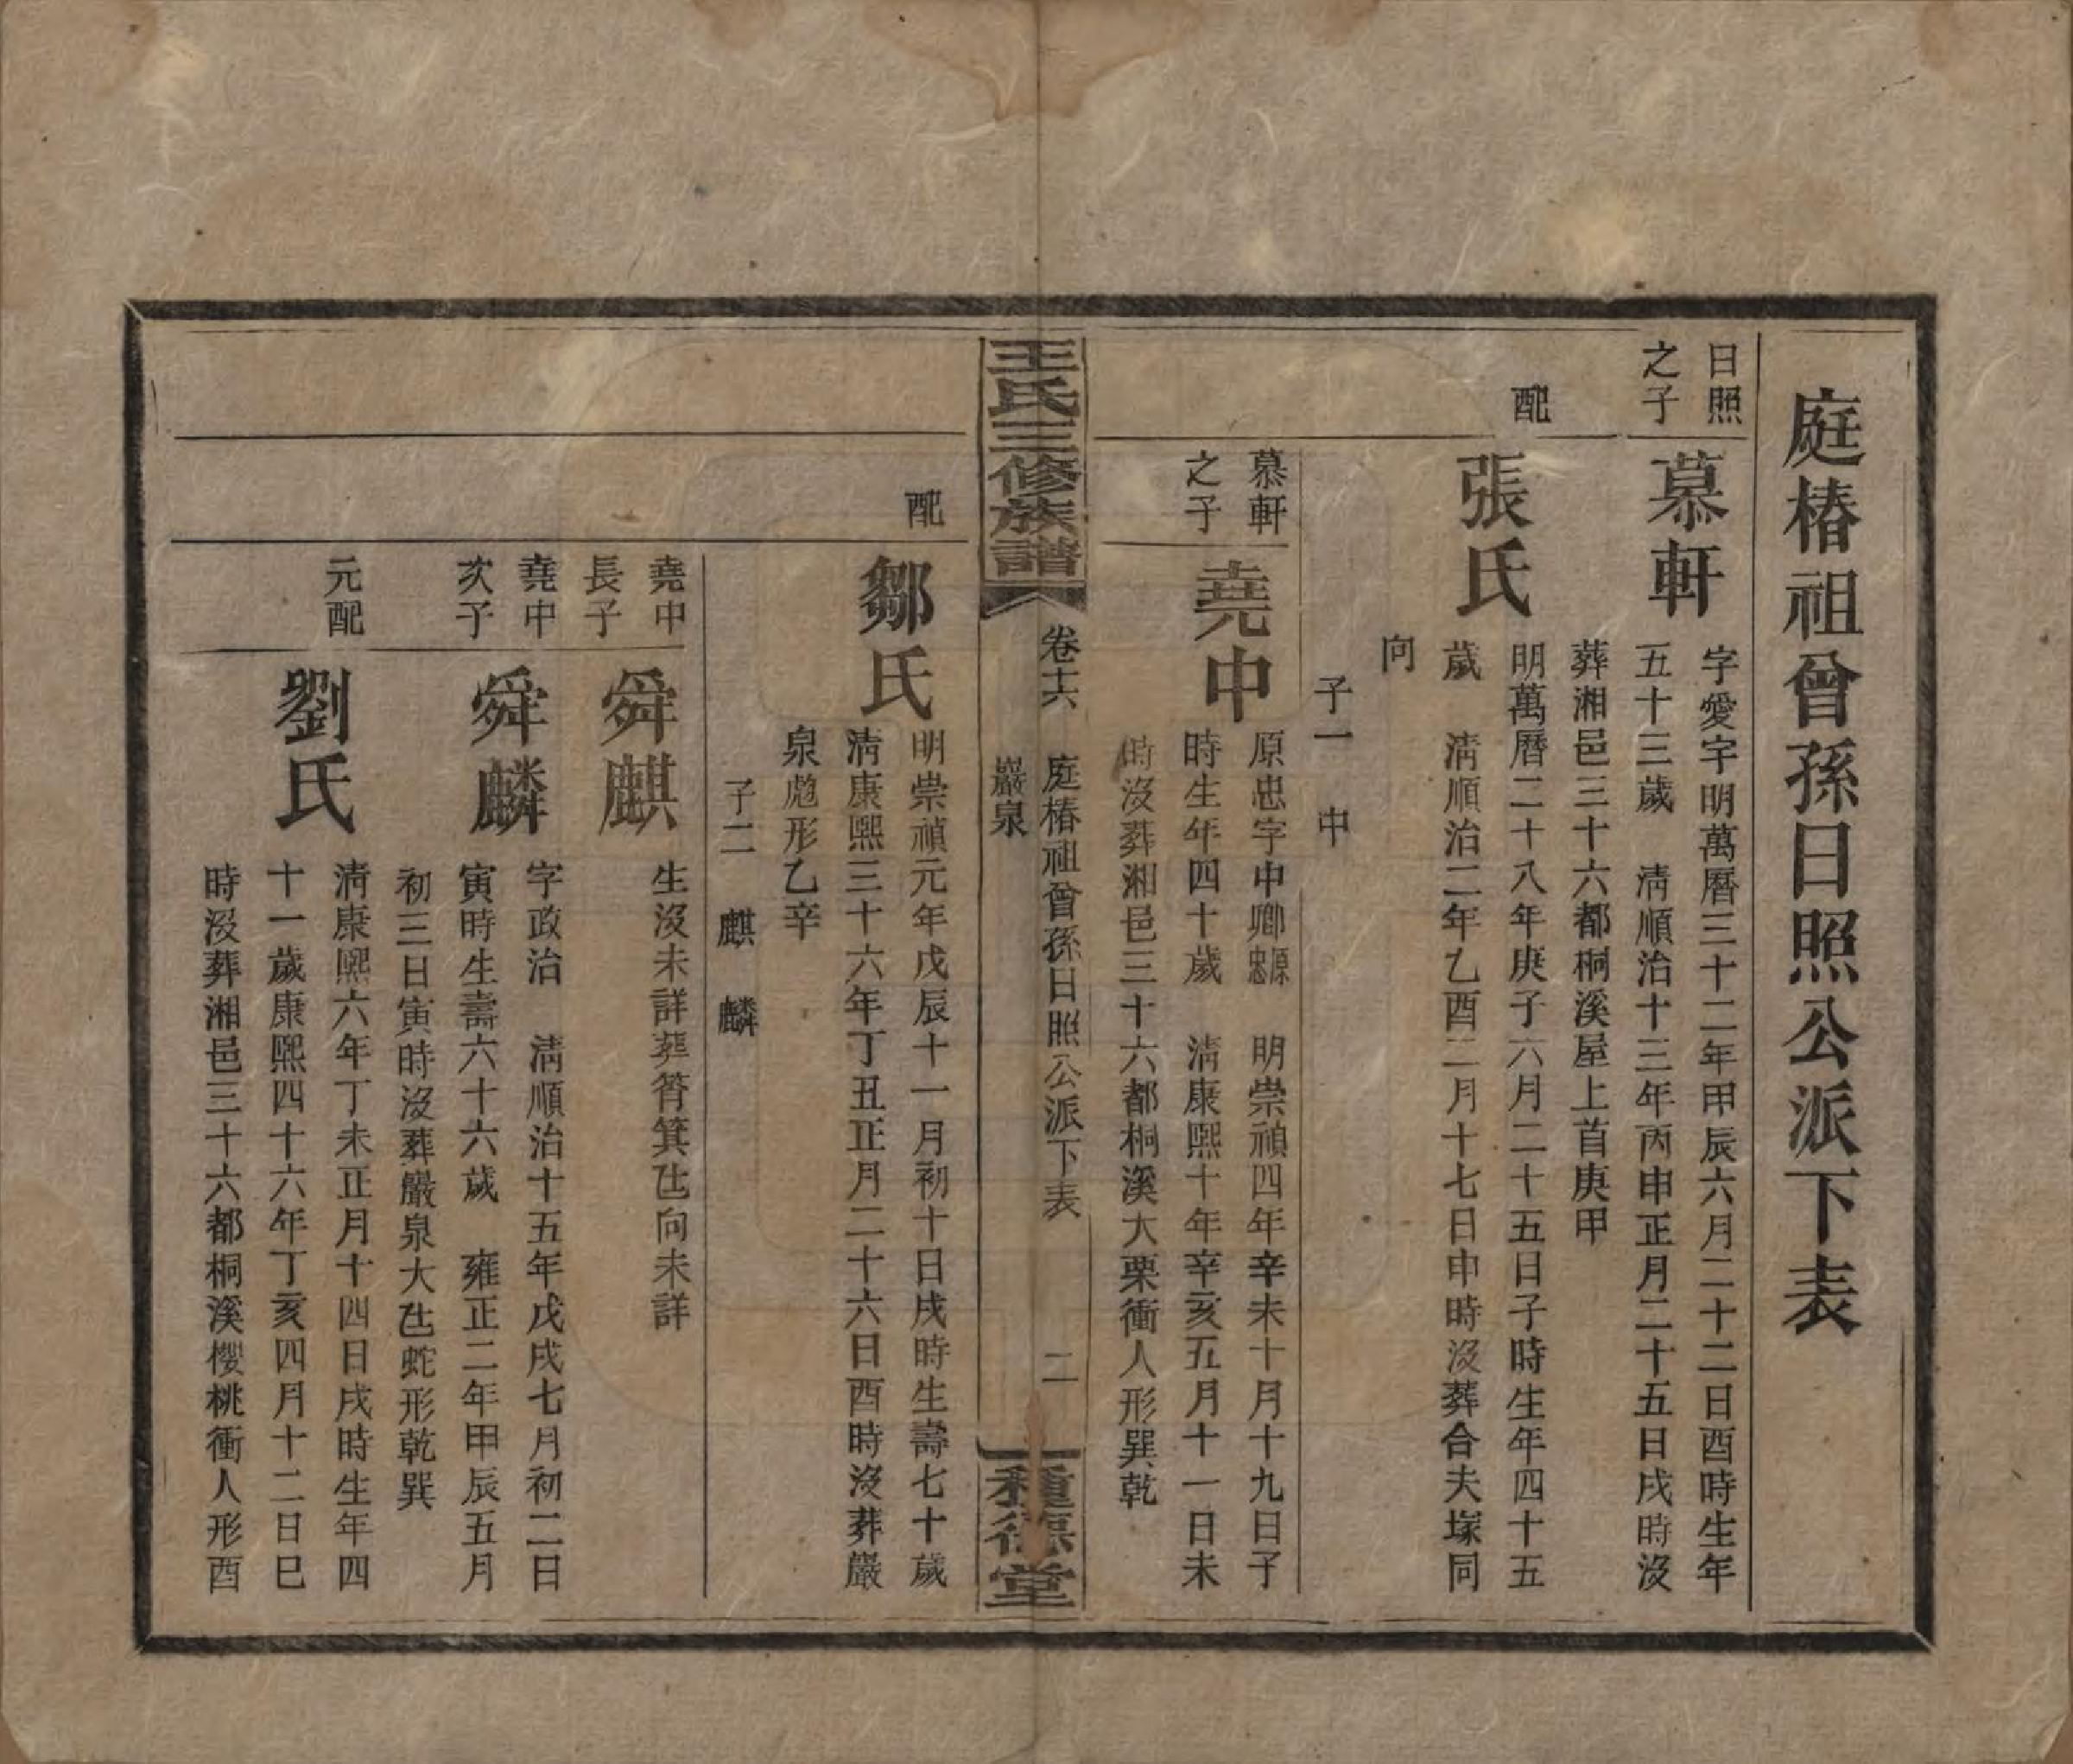 庭椿祖曾孫日照公派下表
日照
之子
慕軒
字愛字明萬曆三十二年甲辰六月二十二日酉時生年
五十三歲　淸順治十三年丙申正月二十五日戌時沒
葬湘邑三十六都桐溪屋上首庚甲
配
張氏
明萬曆二十八年庚子六月二十五日子時生年四十五
歲　淸順治二年乙酉二月十七日申時沒葬合夫塚同
向
子一　中
慕軒
之子
堯中
原忠字中卿原忠　明崇禎四年辛未十月十九日子
時生年四十歲　淸康熙十年辛亥五月十一日未
時沒葬湘邑三十六都桐溪大栗衝人形巽乾
王氏三修族譜
卷十六　庭椿祖曾孫日照公派下表　二
巖泉
種德堂
配
鄒氏
明崇禎元年戊辰十一月初十日戌時生壽七十歲
淸康熙三十六年丁丑正月二十六日酉時沒葬巖
泉彪形乙辛
子二　麒　麟
堯中
長子
舜麒
生沒未詳葬筲箕𠙚向未詳
堯中
次子
舜麟
字政治　淸順治十五年戊戌七月初二日
寅時生壽六十六歲　雍正二年甲辰五月
初三日寅時沒葬巖泉大𠙚蛇形乾巽
元配
劉氏
淸康熙六年丁未正月十四日戌時生年四
十一歲康熙四十六年丁亥四月十二日巳
時沒葬湘邑三十六都桐溪櫻桃衝人形酉